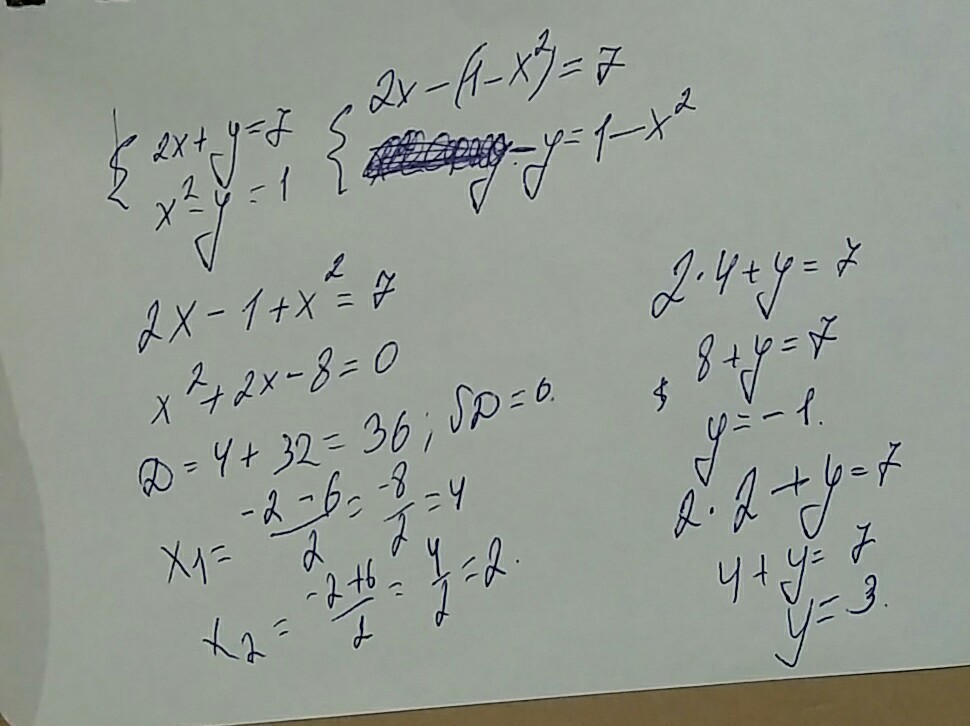 { 2x+y=7 { 2x-(1-x²)=7
x²-y=1 -y=1-x²
2x-1+x²=7
x²+2x-8=0
D=4+32=36; √D=6.
x1= -2-6/2 = -8/2 =4
x2= -2+6/2 = 4/2 =2.
2·4+y=7
8+y=7
y=-1.
2·2+y=7
4+y=7
y=3.